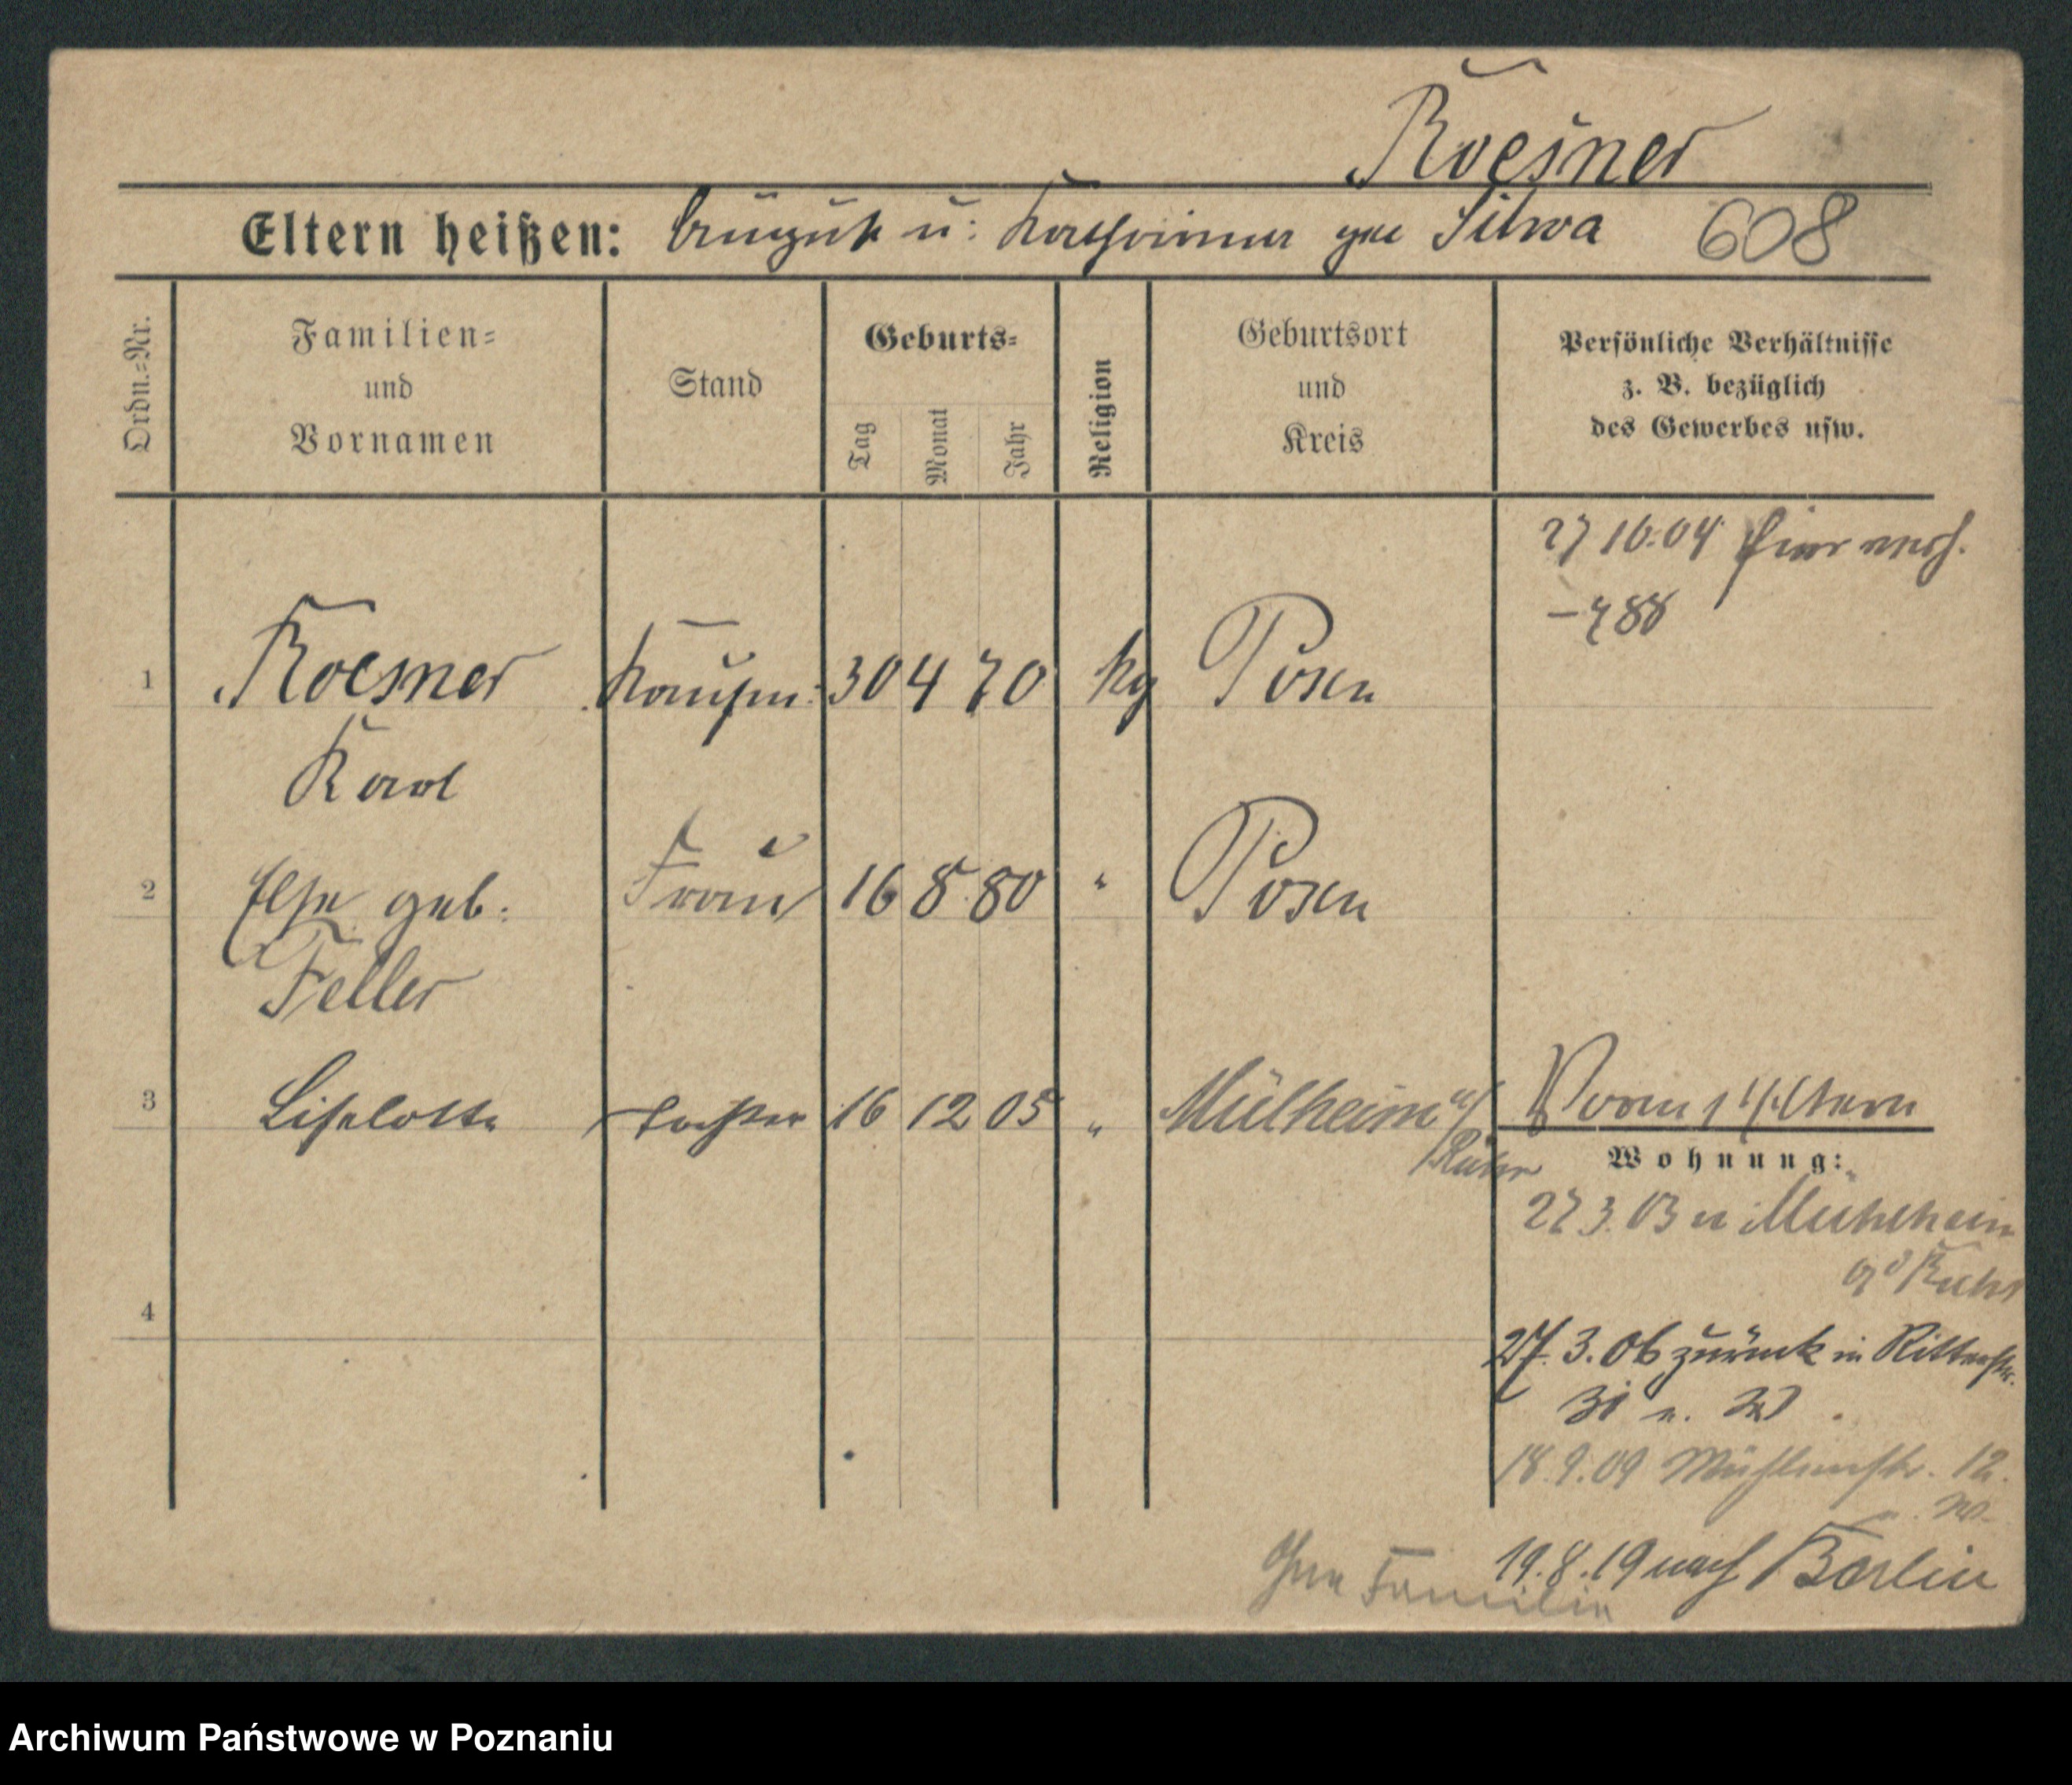 Roesner
Eltern heißen: August u: Katharina geb Silwa 608
Ordn.=Nr.
Familien=
und
Vornamen
Stand
Geburts=
Tag
Monat
Jahr
Religion
Geburtsort
und
Kreis
Persönliche Verhältnisse
z. B. bezüglich
des Gewerbes usw.
27 10.04 hier verh.
– 488
1 Roesner Kaufm: 30 4 70 Posen
Karl
2 Else geb. Frau 16 8 80 " Posen
Feller
3 Liselotte Tochter 16 12 05 " Mülheim a/
Ruhr
Eltern
Wohnung:
27 3. n Mühlheim
Ruhr
27. 3. 06 zurück in Ritterstr.
18.9.09 Mühlenstr. 12.
W.
19.8.19 nach Berlin
Ohne Familie
Archiwum Państwowe w Poznaniu